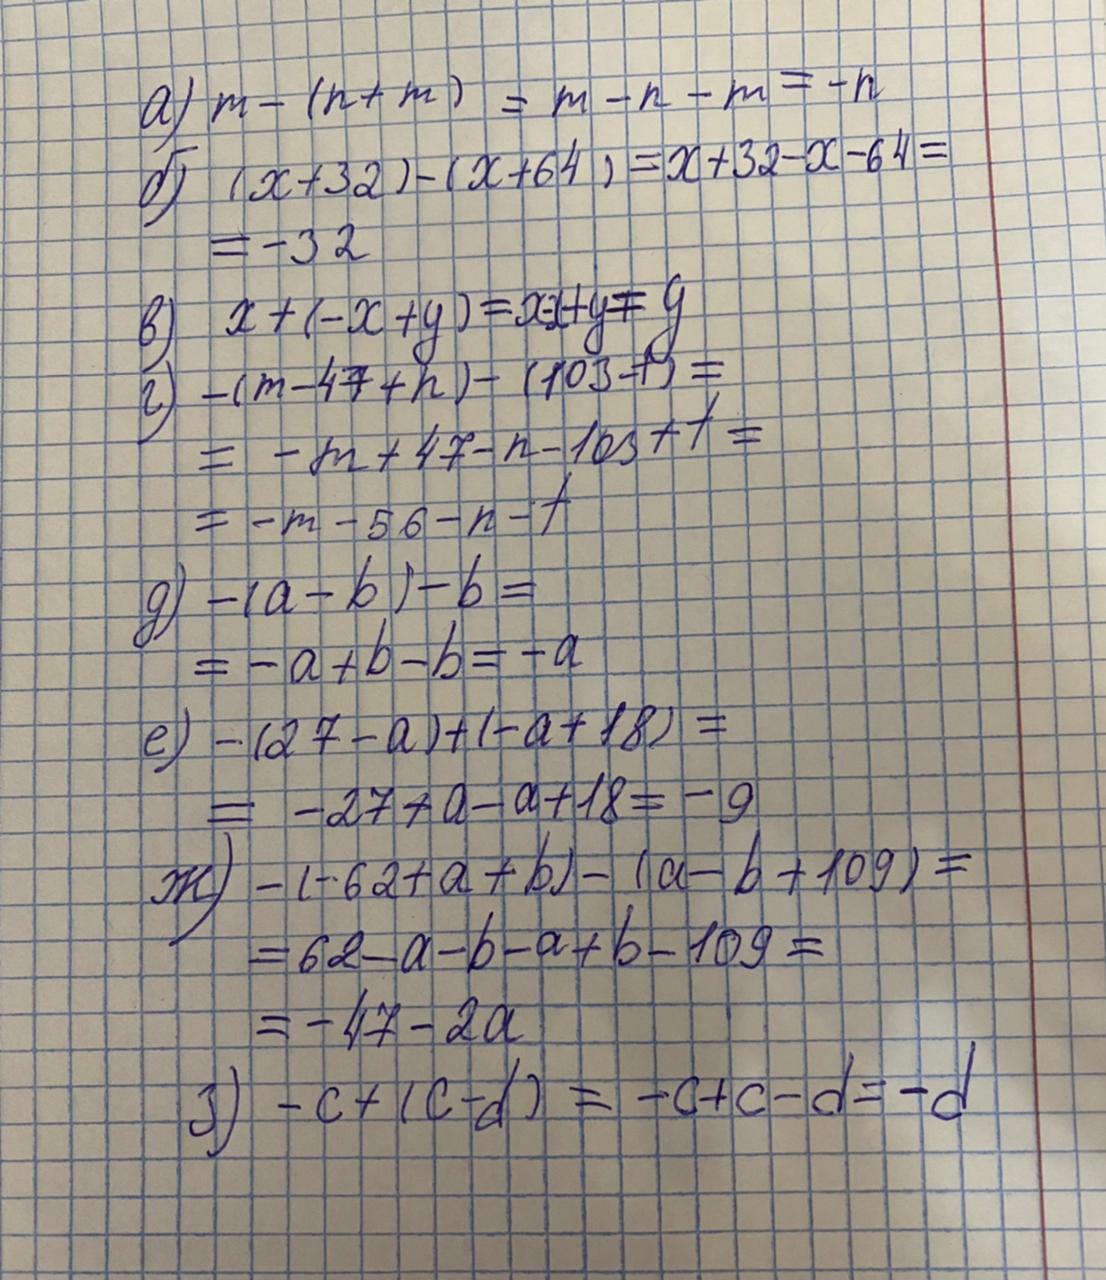 а) m - (n + m) = m - n - m = -n
б) (x+32)-(x+64) = x+32-x-64=
= -32
в) x + (-x + y) = x-x+y = y
г) -(m-47+n) - (103-t) =
= -m + 47 - n - 103 + t =
= -m - 56 - n - t
д) -(a - b) - b =
= -a + b - b = -a
е) -(27 - a)+(-a + 18) =
= -27 + a - a + 18 = -9
ж) -(-62+a+b) - (a - b + 109) =
= 62 - a - b - a + b - 109 =
= -47 - 2a
з) -c + (c-d) = -c+c-d = -d